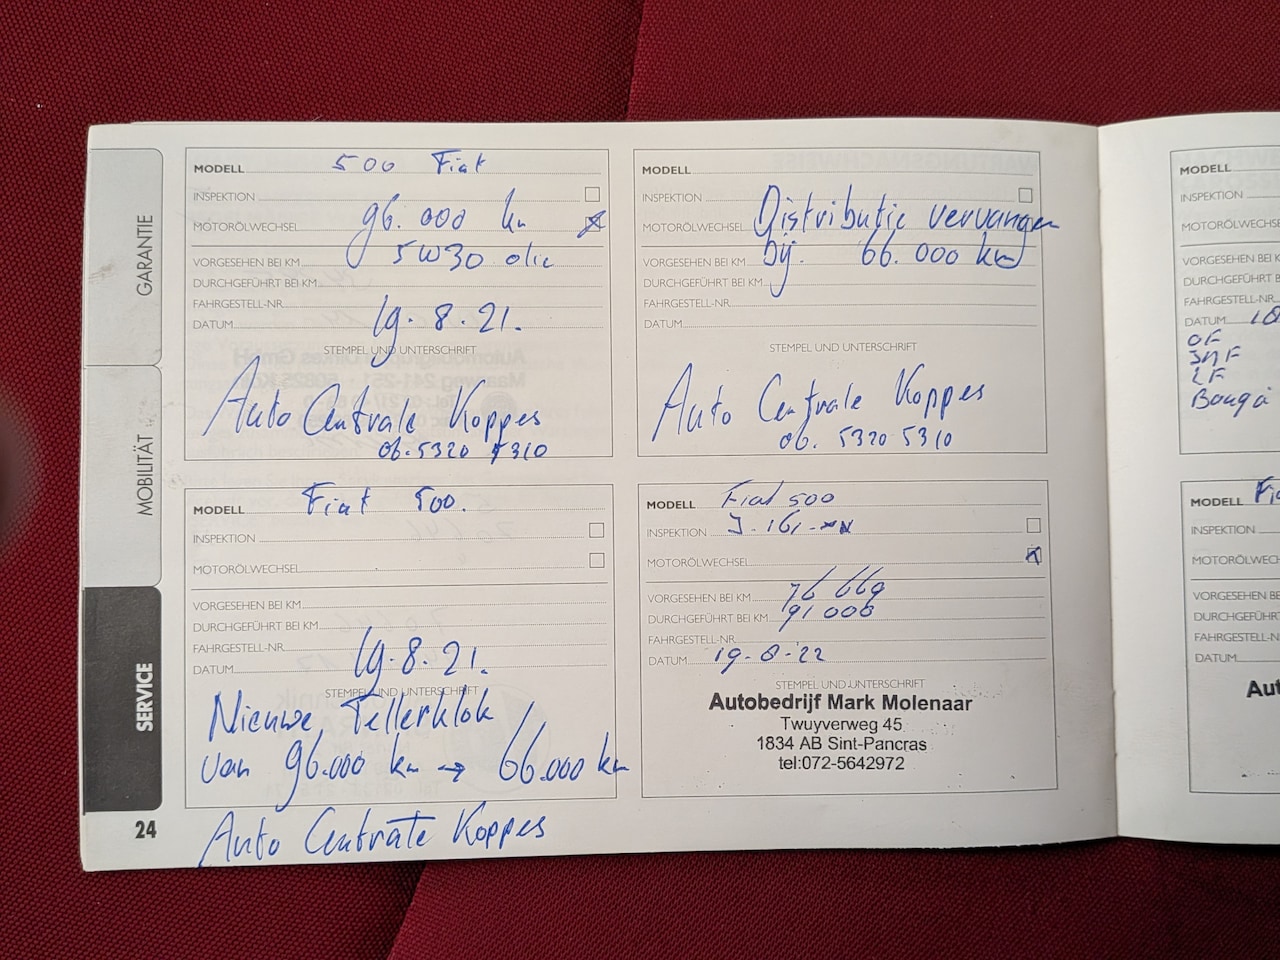 GARANTIE
MOBILITÄT
SERVICE
24
MODELL 500 Fiat
INSPEKTION
MOTORÖLWECHSEL 96.000 km
VORGESEHEN BEI KM 5W30 olie
DURCHGEFÜHRT BEI KM
FAHRGESTELL-NR.
DATUM 19.8.21.
STEMPEL UND UNTERSCHRIFT
Auto Centrale Koppes
06.5320 5310
MODELL
INSPEKTION
MOTORÖLWECHSEL Distributie vervangen
VORGESEHEN BEI KM bij. 66.000 km
DURCHGEFÜHRT BEI KM
FAHRGESTELL-NR.
DATUM
STEMPEL UND UNTERSCHRIFT
Auto Centrale Koppes
06. 5320 5310
MODELL Fiat 500.
INSPEKTION
MOTORÖLWECHSEL
VORGESEHEN BEI KM
DURCHGEFÜHRT BEI KM
FAHRGESTELL-NR.
DATUM 19.8.21.
STEMPEL UND UNTERSCHRIFT
Nieuwe Tellerklok
van 96.000 km → 66.000 km
Auto Centrale Koppes
MODELL Fiat 500
INSPEKTION
MOTORÖLWECHSEL
VORGESEHEN BEI KM 76 669
DURCHGEFÜHRT BEI KM 91 006
FAHRGESTELL-NR.
DATUM 19-8-22
STEMPEL UND UNTERSCHRIFT
Autobedrijf Mark Molenaar
Twuyverweg 45
1834 AB Sint-Pancras
tel:072-5642972
MODELL
INSPEKTION
MOTORÖLWECHSE
VORGESEHEN BEI K
DURCHGEFÜHRT BEI K
FAHRGESTELL-NR.
DATUM
OF
INF
LF
MODELL
INSPEKTION
MOTORÖLWECHSE
VORGESEHEN BE
DURCHGEFÜHRT B
FAHRGESTELL-NR
DATUM